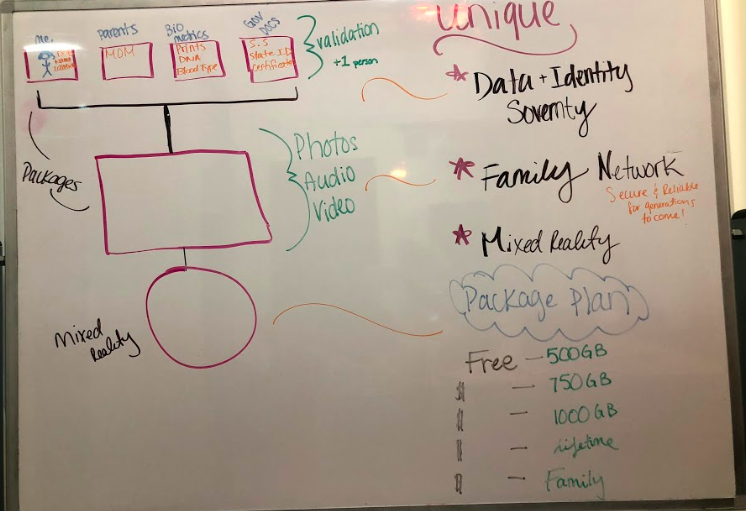 me.
Parents
Bio
metrics
Gov
Docs
MOM
Prints
DNA
Blood Type
S.S
State ID
Certificate
validation
+1 person
Packages
Photos
Audio
Video
Mixed
Reality
unique
* Data + Identity
Sovernty
* Family Network
Secure & Reliable
for generations
to come!
* Mixed Reality
Package Plan
Free - 500GB
- 750GB
- 1000GB
- lifetime
- Family